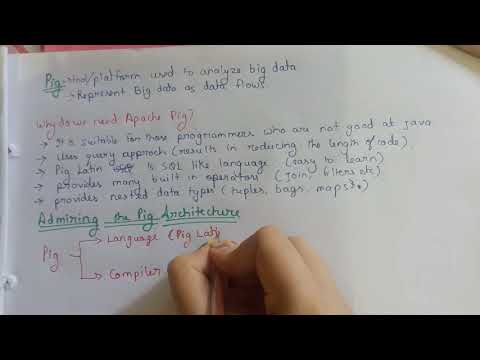 Pig - tool/platform used to analyze big data
→ Represent Big data as data flows.
Why do we need Apache Pig?
→ It is suitable for those programmers who are not good at java
→ Uses query approch (results in reducing the length of code)
→ Pig Latin is SQL like language (easy to learn)
→ provides many built in operators (join, filters etc)
→ provides nested data types (tuples, bags, maps)
Admiring the Pig Architecture
Pig → Language (Pig Lati
→ Compiler